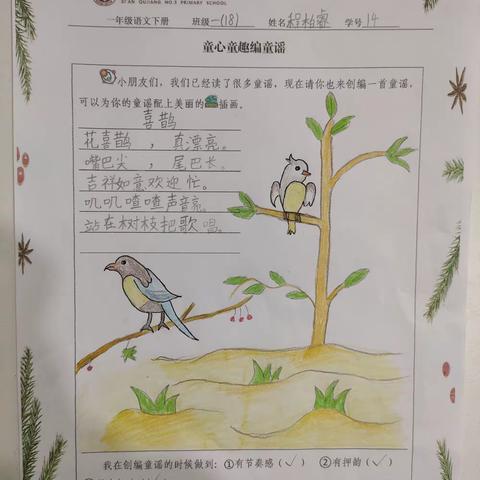 XI'AN QUJIANG NO.3 PRIMARY SCHOOL
一年级语文下册 班级一(18) 姓名程柏睿 学号14
童心童趣编童谣
小朋友们，我们已经读了很多童谣，现在请你也来创编一首童谣，
可以为你的童谣配上美丽的插画。
喜鹊
花喜鹊，真漂亮。
嘴巴尖，尾巴长。
吉祥如意欢迎忙。
叽叽喳喳声音亮。
站在树枝把歌唱。
我在创编童谣的时候做到：①有节奏感（✓） ②有押韵（✓）